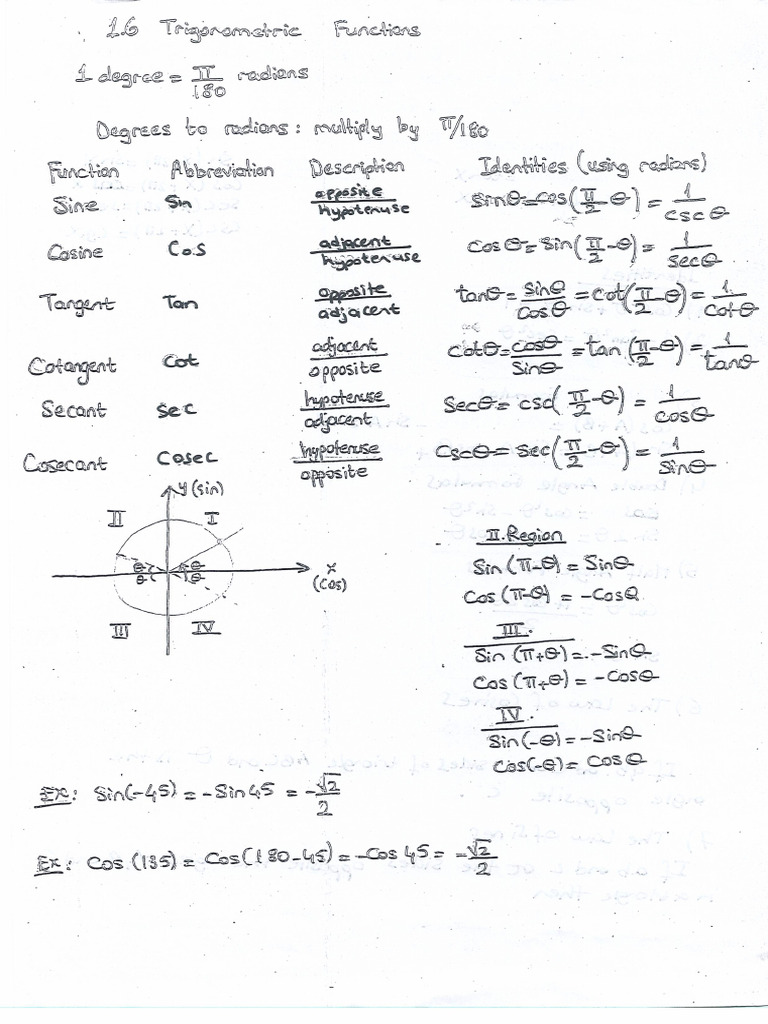 1.6 Trigonometric Functions
1 degree = π/180 radians
Degrees to radians: multiply by π/180
Function Abbreviation Description Identities (using radians)
Sine Sin opposite/Hypotenuse sinθ=cos(π/2-θ) = 1/cscθ
Cosine Cos adjacent/hypotenuse cosθ=sin(π/2-θ) = 1/secθ
Tangent Tan opposite/adjacent tanθ = sinθ/cosθ = cot(π/2-θ) = 1/cotθ
Cotangent Cot adjacent/opposite cotθ=cosθ/sinθ = tan(π/2-θ) = 1/tanθ
Secant Sec hypotenuse/adjacent Secθ = csc(π/2-θ) = 1/cosθ
Cosecant Cosec hypotenuse/opposite Cscθ = sec(π/2-θ) = 1/sinθ
y (sin)
II I
θ θ
θ θ
x
(cos)
III IV
II. Region
Sin (π-θ) = Sinθ
Cos (π-θ) = -Cosθ
III.
Sin (π+θ) = -Sinθ
Cos (π+θ) = -Cosθ
IV.
Sin(-θ) = -Sinθ
Cos(-θ) = Cosθ
Ex: Sin(-45) = -Sin45 = -√2/2
Ex: Cos (135) = Cos(180-45) = -Cos 45 = -√2/2